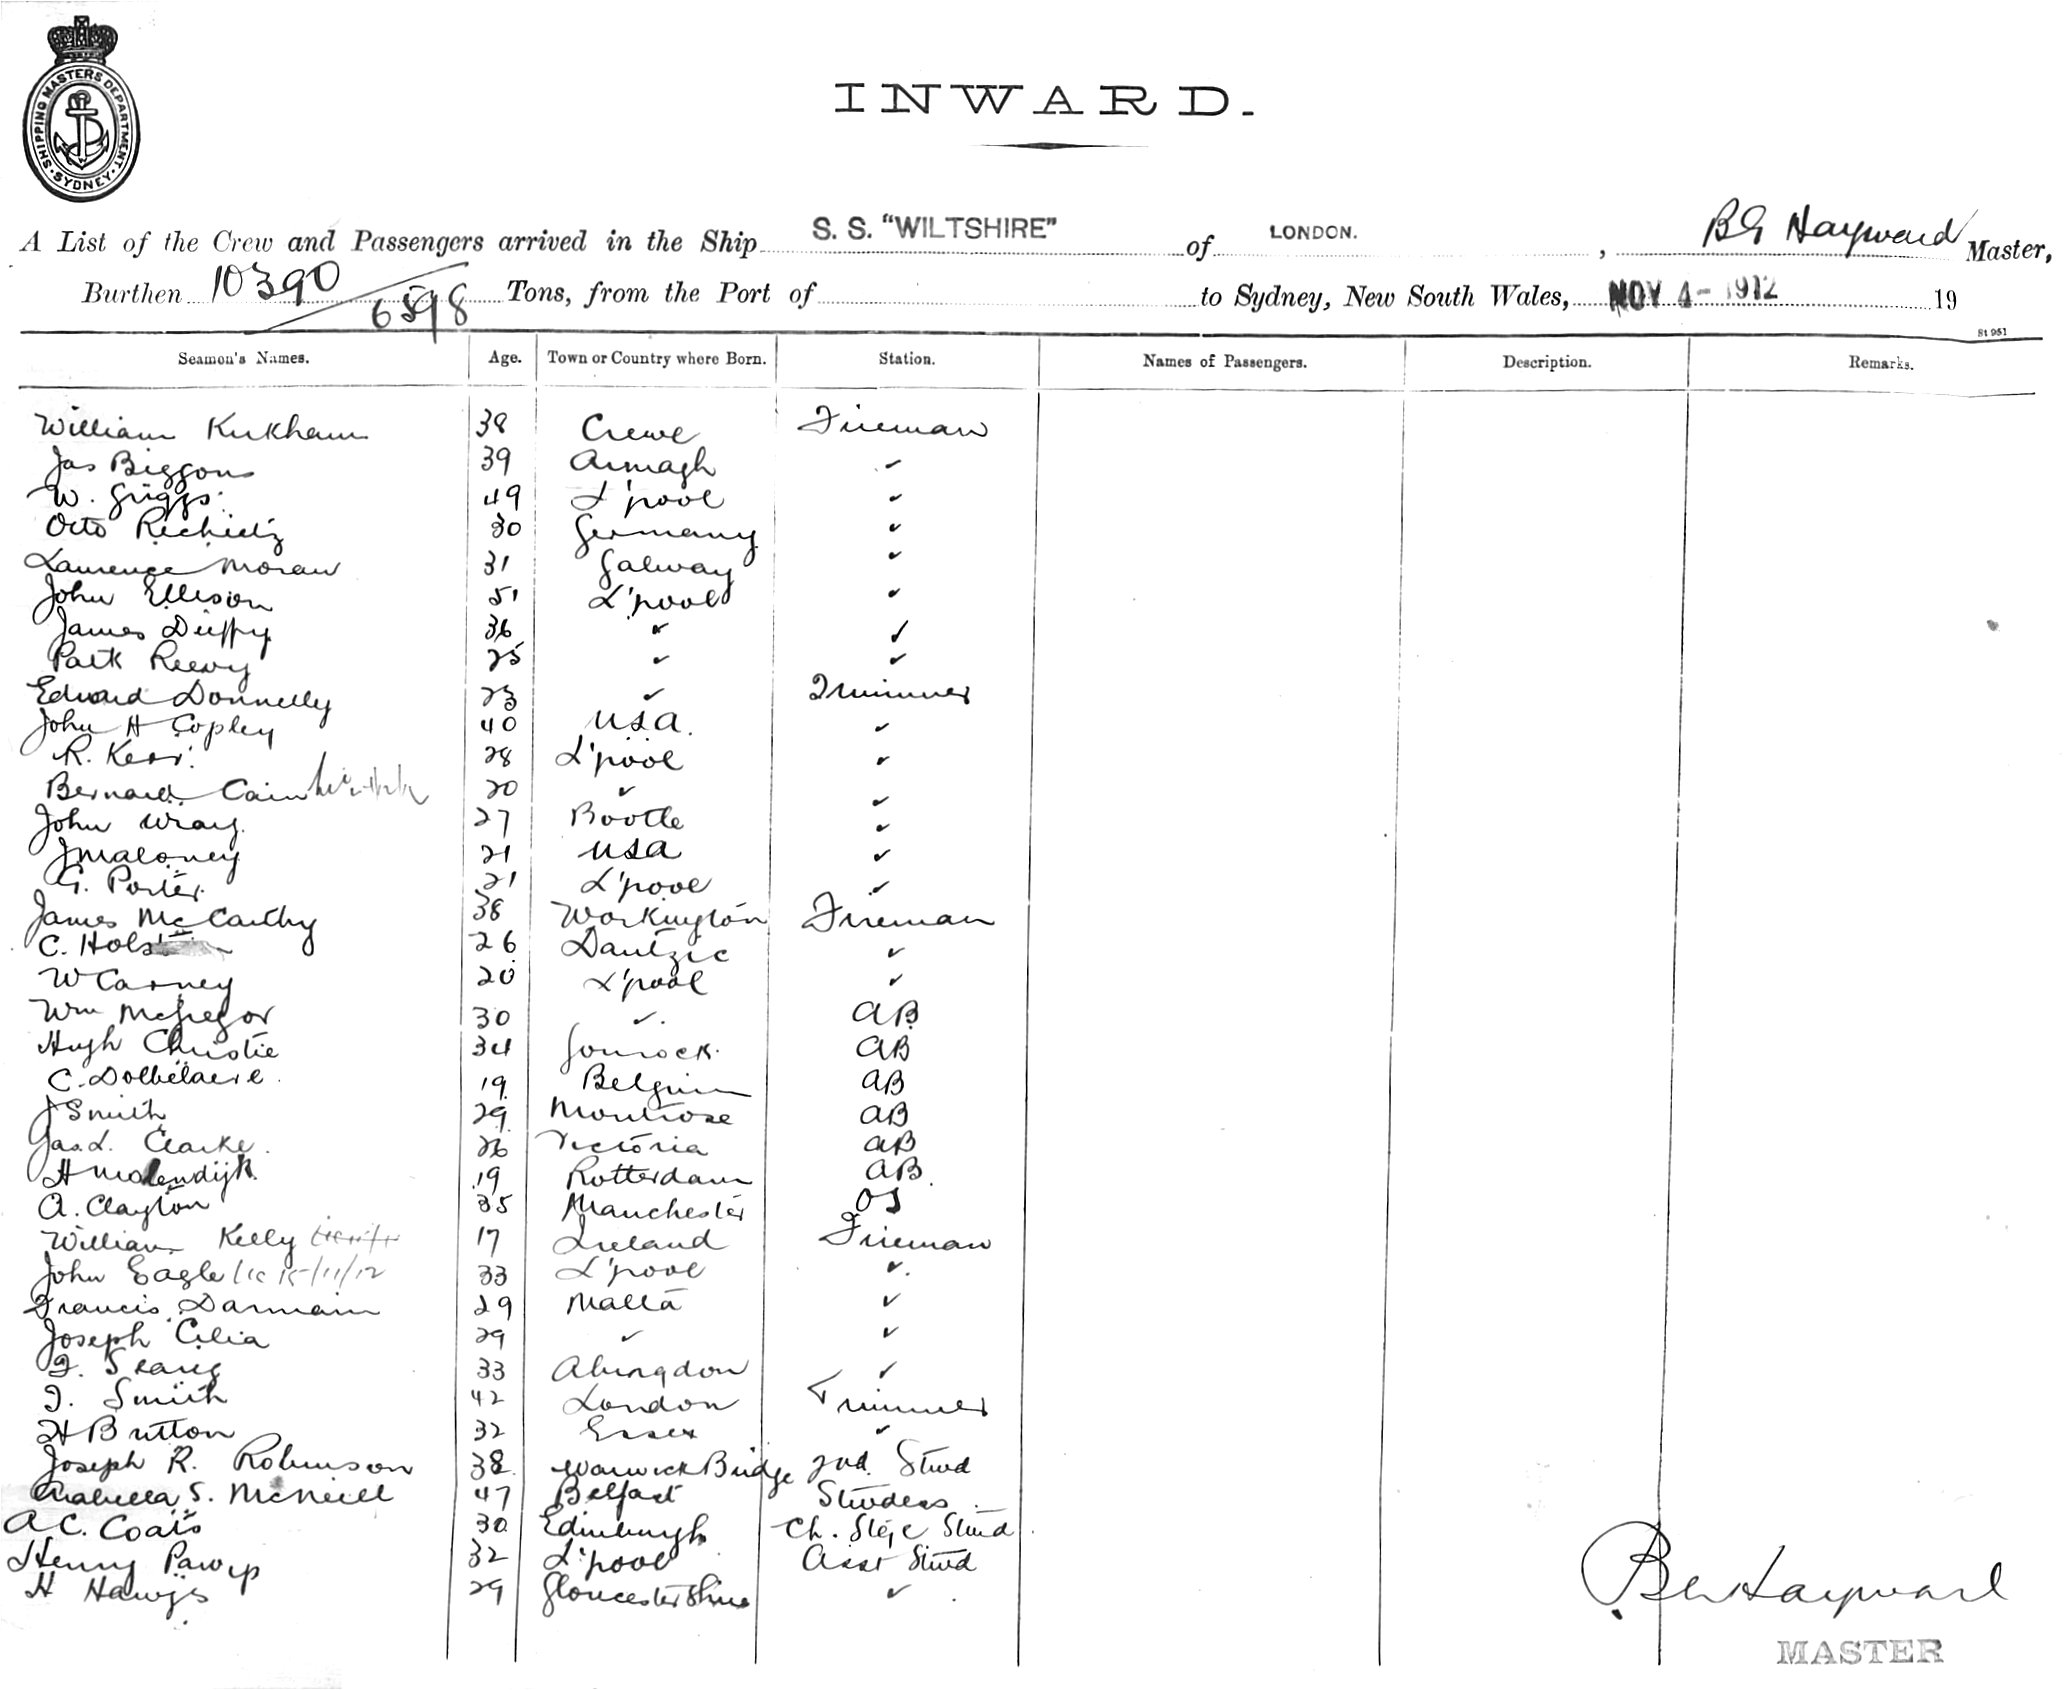 SHIPPING MASTERS DEPARTMENT. SYDNEY.
INWARD.
A List of the Crew and Passengers arrived in the Ship S. S. "WILTSHIRE" of LONDON. , B G Hayward Master,
Burthen 10390 / 6598 Tons, from the Port of to Sydney, New South Wales, NOV 4 - 1912 19
St 951
Seamen's Names. Age. Town or Country where Born. Station. Names of Passengers. Description. Remarks.
William Kirkham 38 Crewe Fireman
Jas Biggons 39 Armagh ✓
W. Griggs 49 L'pool ✓
Otto 30 Germany ✓
Laurence Moran 31 Galway ✓
John Ellison 51 L'pool ✓
James Duffy 36 ✓ ✓
Patk Reevy 25 ✓ ✓
Edward Donnelly 23 ✓ Trimmer
John H Copley 40 USA. ✓
R. Kerr. 28 L'pool ✓
Bernard Cain 20 ✓ ✓
John Wray. 27 Bootle ✓
J Maloney 21 USA ✓
G. Porter. 21 L'pool ✓
James McCarthy 38 Workington Fireman
C. 26 Dantzic ✓
W Carney 20 L'pool ✓
Wm McGregor 30 ✓ AB
Hugh Christie 34 Gourock. AB
C. Dolbelaere. 19 Belgium AB
J Smith 29 Montrose AB
Jas. L. Clarke. 26 Victoria AB
H Molendijk 19 Rotterdam AB.
A. Clayton 35 Manchester OS
William Kelly 17 Ireland Fireman
John Eagle 15/11/12 33 L'pool ✓
Francis Darmain 29 Malta ✓
Joseph Cilia 29 ✓ ✓
33 Abingdon ✓
J. Smith 42 London Trimmer
H Britton 32 Essex ✓
Joseph R. Robinson 38 Warwick Bridge 2nd. Stwd
Arabella S. McNeill 47 Belfast Stwdess
A C. Coats 30 Edinburgh Ch. Stge Stwd
Henry 32 L'pool Asst Stwd
H 29 Gloucestershire ✓
B G Hayward
MASTER